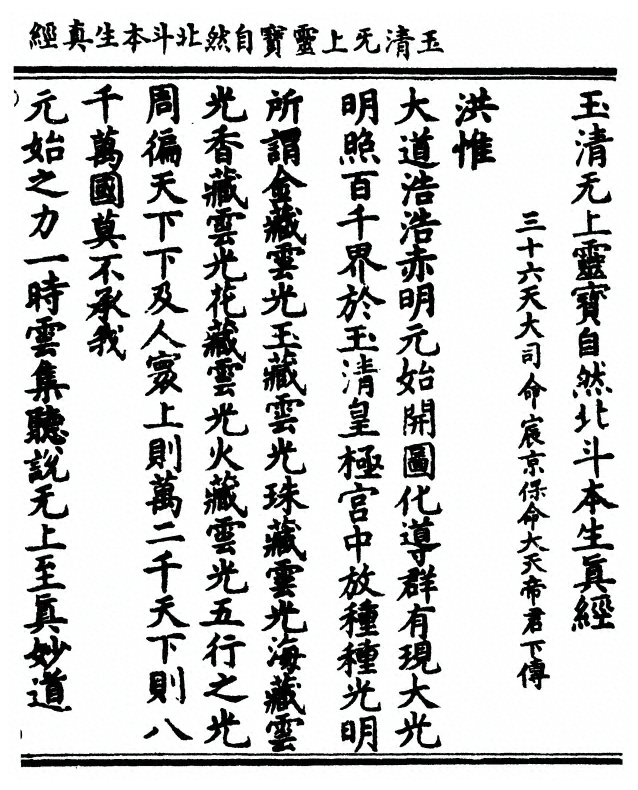 玉清无上靈寶自然北斗本生真經
玉清无上靈寶自然北斗本生眞經
三十六天大司命宸京保命大天帝君下傳
洪惟
大道浩浩赤明元始開圖化導群有現大光
明照百千界於玉清皇極宮中放種種光明
所謂金藏雲光玉藏雲光珠藏雲光海藏雲
光香藏雲光花藏雲光火藏雲光五行之光
周徧天下下及人寰上則萬二千天下則八
千萬國莫不承我
元始之力一時雲集聽說无上至眞妙道